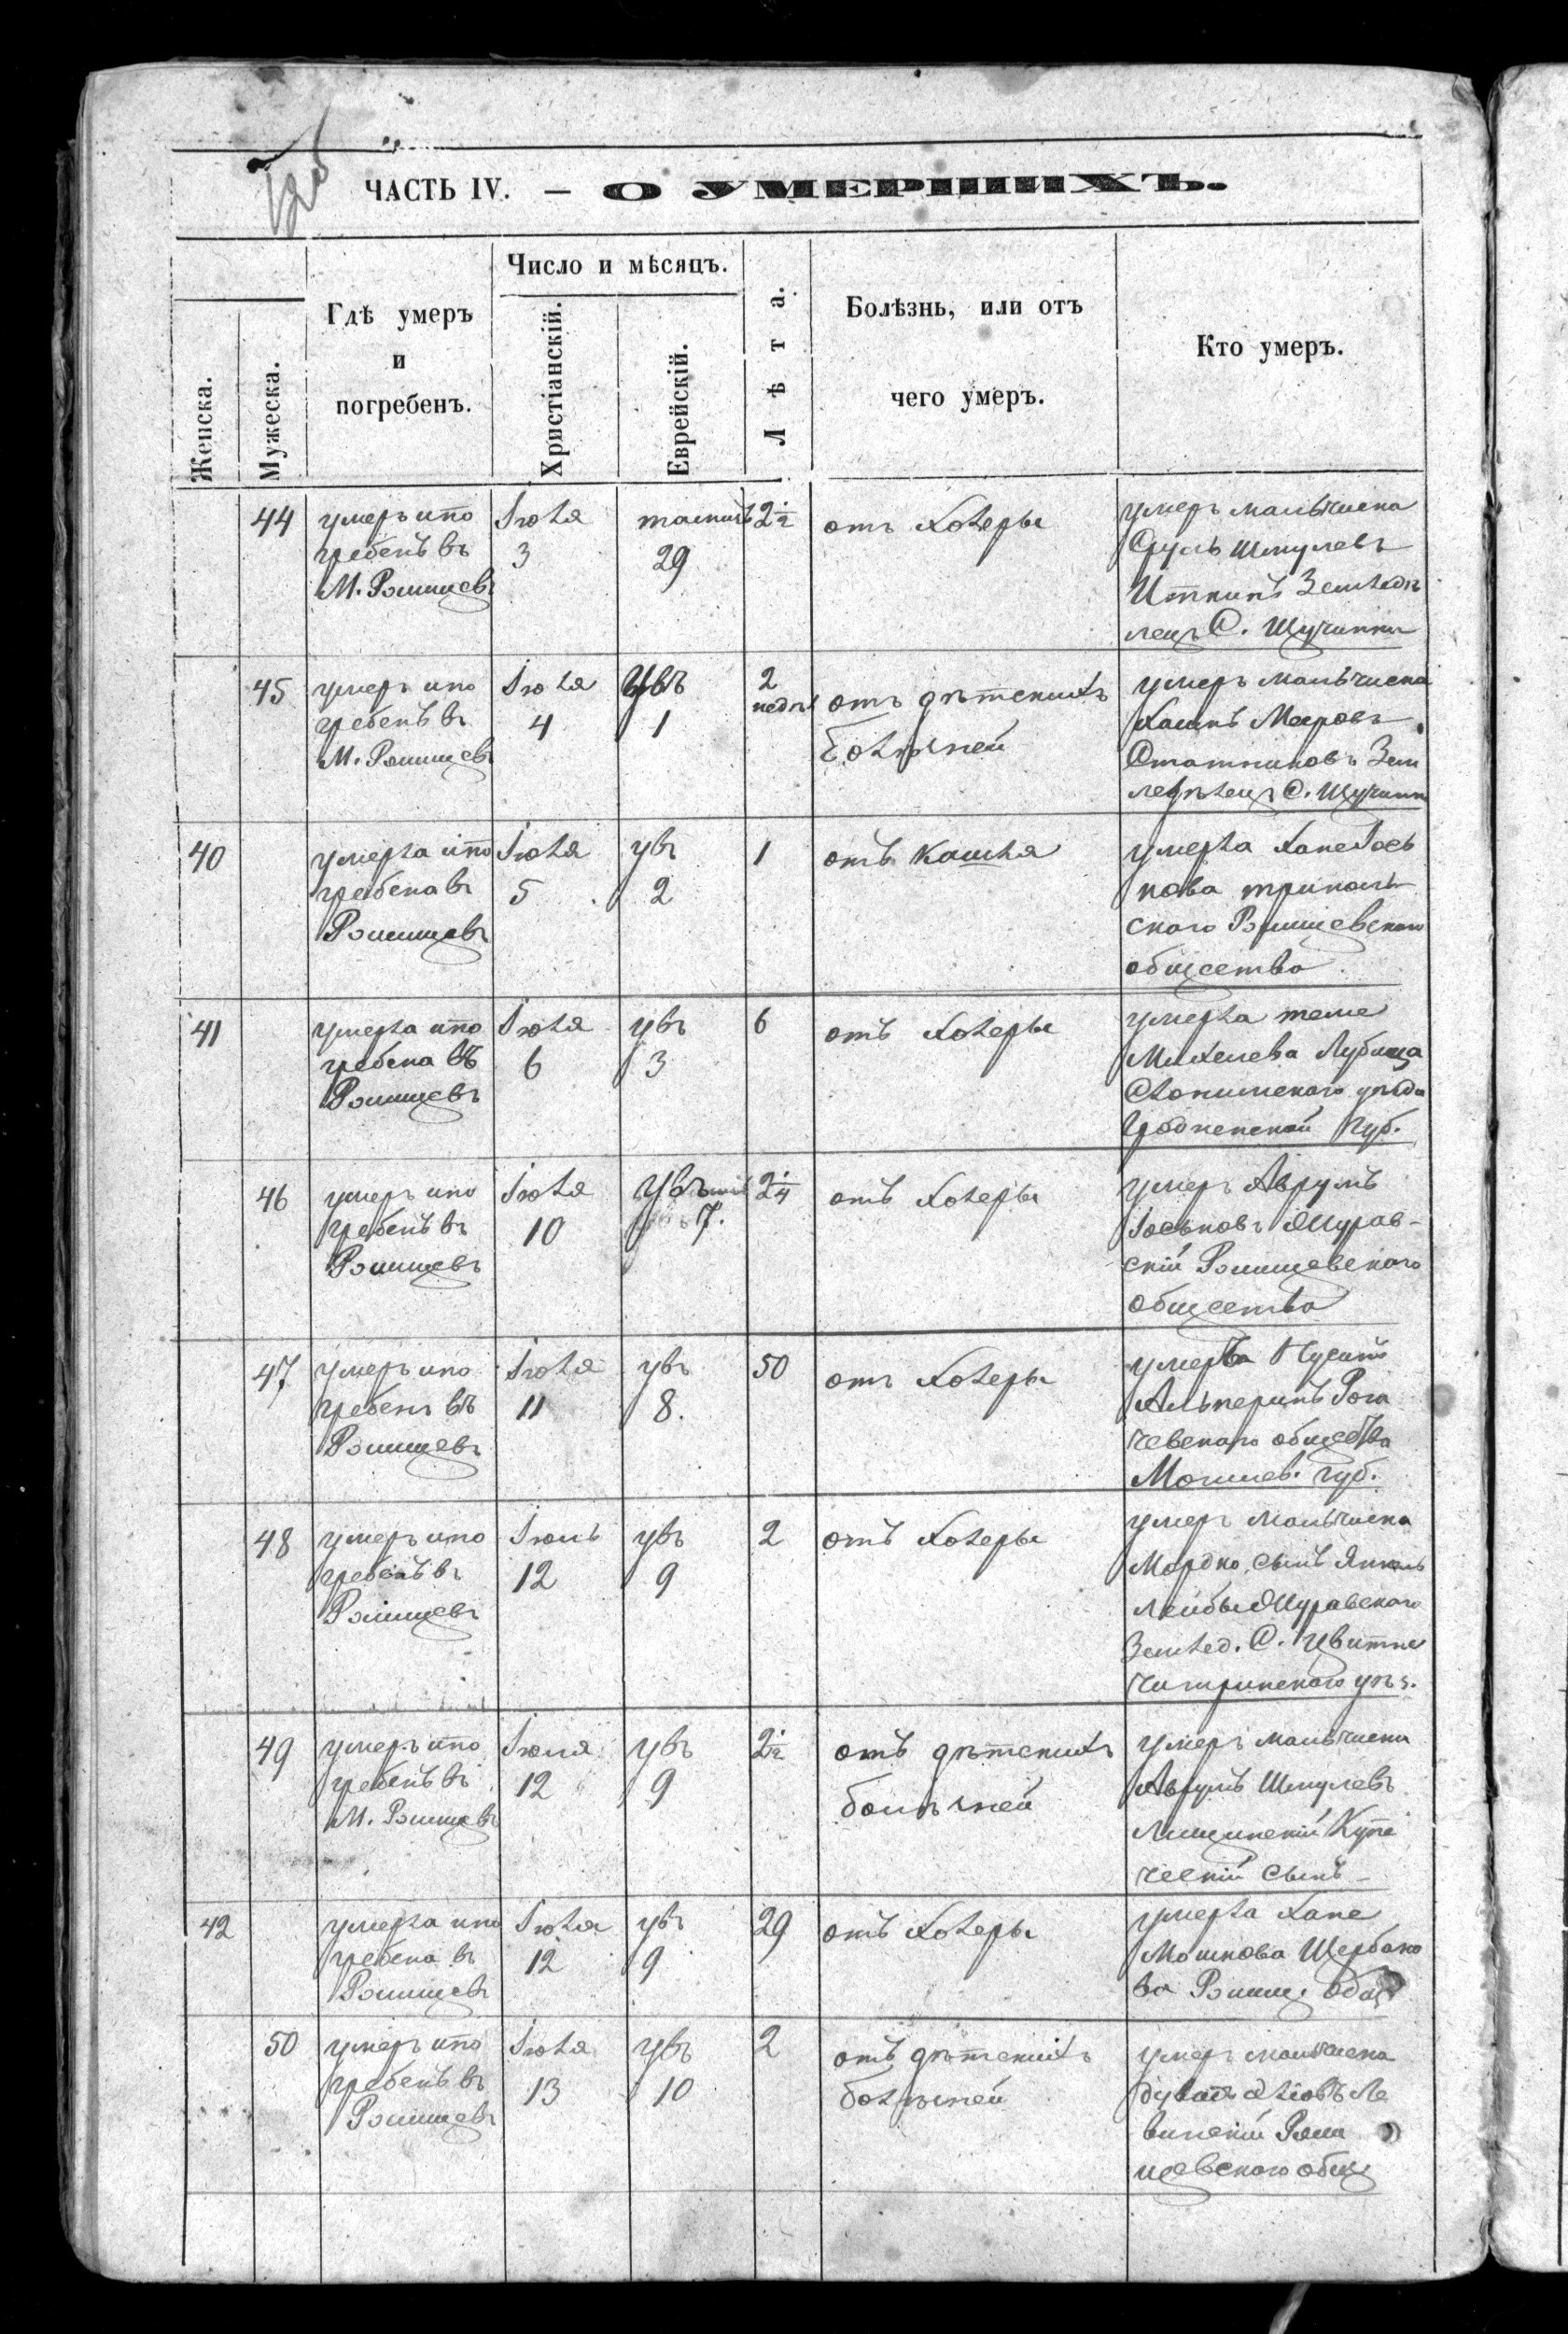 ЧАСТЬ IV. — О УМЕРШИХЪ.
Женска.
Мужеска.
Гдѣ умеръ
и
погребенъ.
Число и мѣсяцъ.
Христіанскій.
Еврейскій.
Лѣта.
Болѣзнь, или отъ
чего умеръ.
Кто умеръ.
44
умеръ и по
гребенъ въ
М. Ром
Іюля
3
29
2 1/2
отъ Холеры
умеръ мальчика
Сруль Шмулевъ
Иткинъ Землед
лец С. Щучинки
45
умеръ и по
гребенъ въ
М.
Іюля
4
увъ
1
2
недѣл
отъ дѣтскихъ
болѣзней
умеръ мальчика
Хаимъ Меировъ
Зем
ледѣлец С. Щучинк
40
умерла и по
гребена въ
Іюля
5
увъ
2
1
отъ кашля
умерла Хане Іось
кова триполь
ского
общества
41
умерла и по
гребена въ
Іюля
6
увъ
3
6
отъ Холеры
умерла теме
Михелева
Слонимского уѣзда
Гродненской Губ.
46
умеръ и по
гребенъ въ
Іюля
10
увъ
7.
2 1/4
отъ Холеры
умеръ Аврумъ
Іоськовъ Журав-
скій
общества
47
умеръ и по
гребенъ въ
Іюля
11
увъ
8.
50
отъ Холеры
умерла
Альперинъ Рога
чевского общества
Могилев. губ.
48
умеръ и по
гребенъ въ
Іюль
12
увъ
9
2
отъ Холеры
умеръ мальчика
Мордко сынъ Янкель
Лейбы Журавского
Землед. С. Цвитне
Чигиринского уѣз.
49
умеръ и по
гребенъ въ
М.
Іюля
12
увъ
9
2 1/2
отъ дѣтскихъ
болѣзней
умеръ мальчика
Аврумъ Шмулевъ
Лищинскій Купе
ческій сынъ
42
умерла и по
гребена въ
Іюля
12
увъ
9
29
отъ Холеры
умерла Хане
Мошкова Щербако
ва
50
умеръ и по
гребенъ въ
Іюля
13
увъ
10
2
отъ дѣтскихъ
болѣзней
умеръ мальчика
Ле
винскій
щевского общ